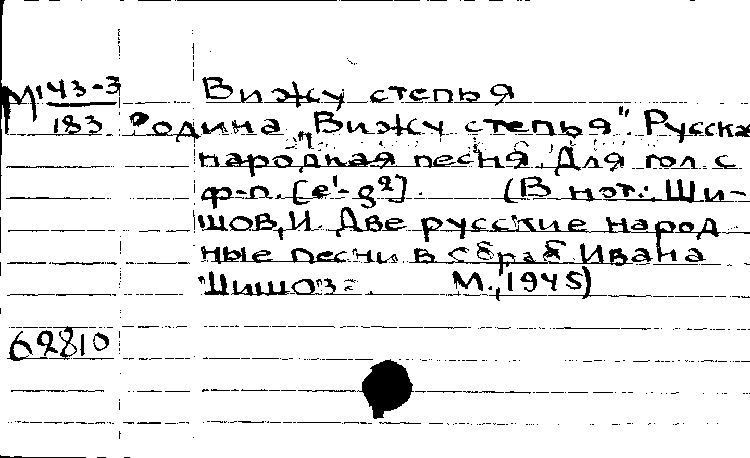 М 143-3 Вижу степь я
183 Родина "Вижу степь я". Русска
народная песня. Для гол с
ф-п. [e¹-g²]. (В нот.: Ши-
шов, И. Две русские народ
ные песни в обраб Ивана
Шишова. М., 1945)
62810